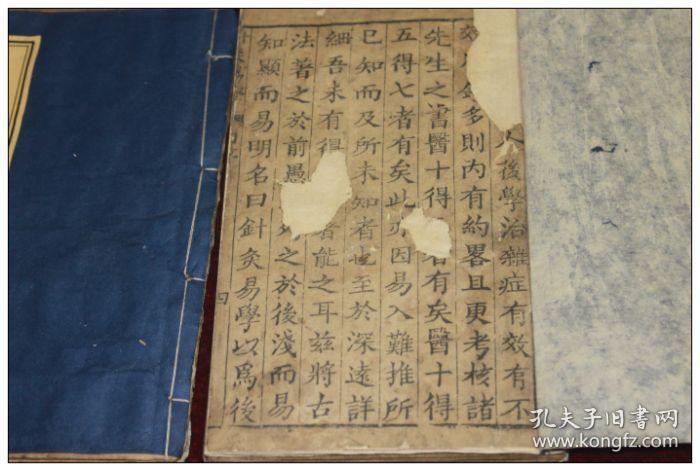 後學治雜症有效有不
多則內有約畧且更考核諸
先生之書醫十得 者有矣醫十得
五得七者有矣此亦因易入難推所
已知而及所未知者也至於深遠詳
細吾未有得 者能之耳茲將古
法著之於前愚 之於後淺而易
知顯而易明名曰針灸易學以爲後
四
孔夫子旧书网
www.kongfz.com